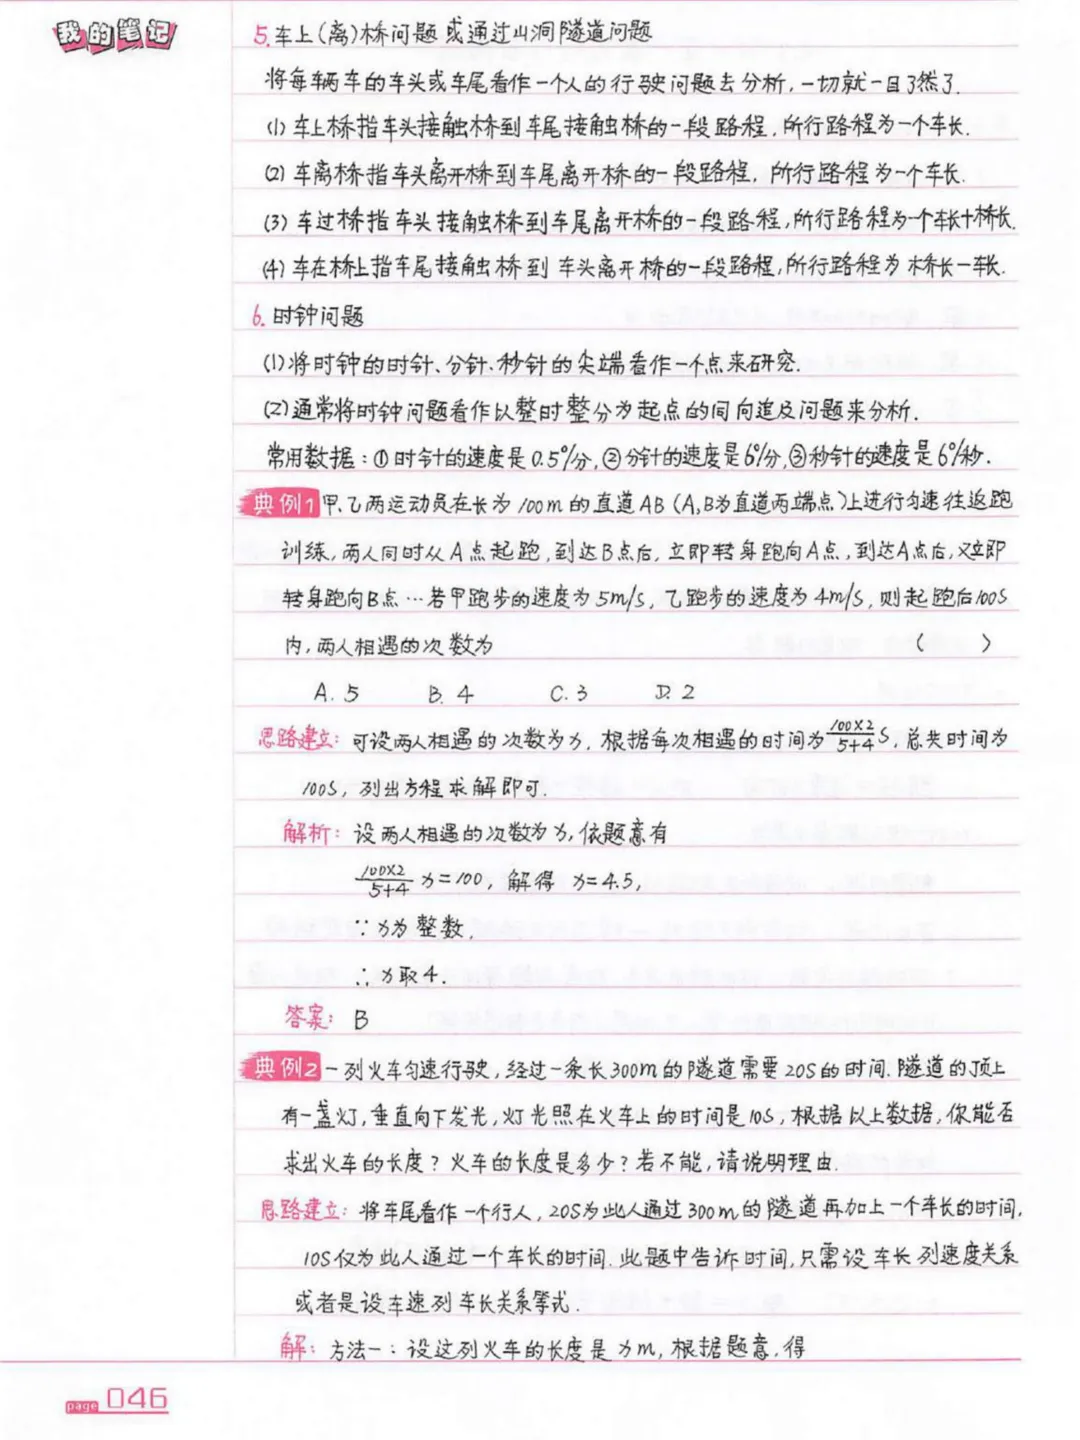 我的笔记
5.车上(离)桥问题或通过山洞隧道问题
将每辆车的车头或车尾看作一个人的行驶问题去分析,一切就一目了然了.
(1)车上桥指车头接触桥到车尾接触桥的一段路程,所行路程为一个车长.
(2)车离桥指车头离开桥到车尾离开桥的一段路程,所行路程为一个车长.
(3)车过桥指车头接触桥到车尾离开桥的一段路程,所行路程为一个车长+桥长.
(4)车在桥上指车尾接触桥到车头离开桥的一段路程,所行路程为桥长-车长.
6.时钟问题
(1)将时钟的时针、分针、秒针的尖端看作一个点来研究.
(2)通常将时钟问题看作以整时整分为起点的同向追及问题来分析.
常用数据:①时针的速度是0.5°/分,②分针的速度是6°/分,③秒针的速度是6°/秒.
典例1 甲、乙两运动员在长为100m的直道AB(A,B为直道两端点)上进行匀速往返跑
训练,两人同时从A点起跑,到达B点后,立即转身跑向A点,到达A点后,又立即
转身跑向B点…若甲跑步的速度为5m/s,乙跑步的速度为4m/s,则起跑后100s
内,两人相遇的次数为 ( )
A.5 B.4 C.3 D.2
思路建立:可设两人相遇的次数为x,根据每次相遇的时间为\frac{100×2}{5+4}s,总共时间为
100s,列出方程求解即可.
解析:设两人相遇的次数为x,依题意有
\frac{100×2}{5+4}x=100,解得 x=4.5,
∵x为整数,
∴x取4.
答案:B
典例2 一列火车匀速行驶,经过一条长300m的隧道需要20s的时间.隧道的顶上
有一盏灯,垂直向下发光,灯光照在火车上的时间是10s,根据以上数据,你能否
求出火车的长度?火车的长度是多少?若不能,请说明理由.
思路建立:将车尾看作一个行人,20s为此人通过300m的隧道再加上一个车长的时间,
10s仅为此人通过一个车长的时间.此题中告诉时间,只需设车长列速度关系
或者是设车速列车长关系等式.
解:方法一:设这列火车的长度是xm,根据题意,得
page 046